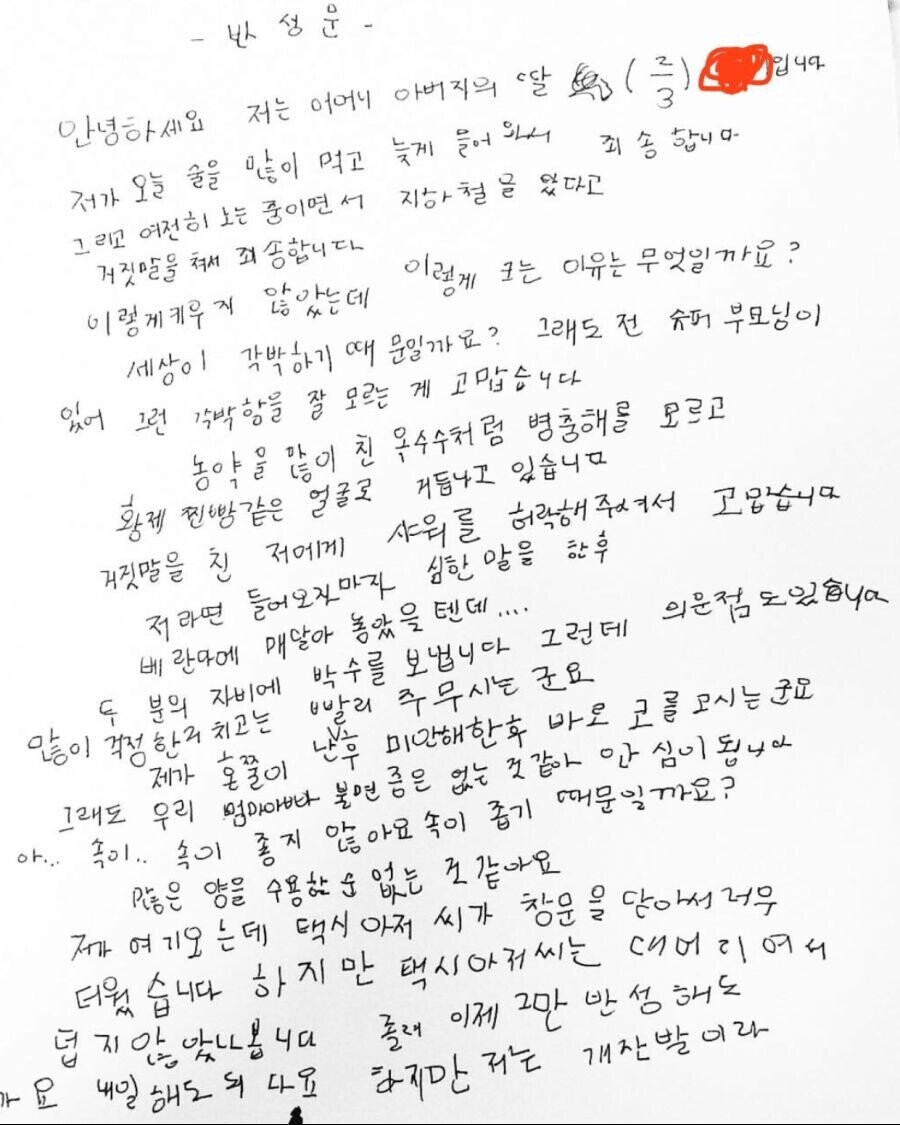 - 반 성 문 -
안녕하세요 저는 어머니 아버지의 딸 (2/3) 입니다
저가 오늘 술을 많이 먹고 늦게 들어 와서 죄 송 합니다
그리고 여전히 노는 중이면서 지하철을 탔다고
거짓말을 쳐서 죄송합니다
이렇게키우지 않았는데 이렇게 크는 이유는 무엇일까요?
세상이 각박하기 때문일까요? 그래도 전 슈퍼 부모님이
있어 그런 각박함을 잘 모르는 게 고맙습니다
농약을 많이 친 옥수수처럼 병충해를 모르고
황제 찐빵같은 얼굴로 거듭나고 있습니다
거짓말을 친 저에게 샤워를 허락해주셔서 고맙습니다
저라면 들어오자마자 심한 말을 한후
베란다에 매달아 놓았을 텐데....
두 분의 자비에 박수를 보냅니다 그런데 의문점도있습니다
많이 걱정한거 치고는 빨리 주무시는 군요
제가 혼쭐이 난후 미안해한후 바로 코를 고시는군요
그래도 우리 엄마아빠가 불면증은 없는 것같아 안심이 됩니다
아... 속이.. 속이 좋지 않아요 속이 좁기 때문일까요?
많은 양을 수용할 순 없는 것 같아요
저가 여기오는데 택시아저씨가 창문을 닫아서 너무
더웠습니다 하지만 택시아저씨는 대머리여서
덥지 않았나봅니다 졸려 이제 그만 반성해도
까요 내일 해도 되 다요 하지만 저는 개잔발이라